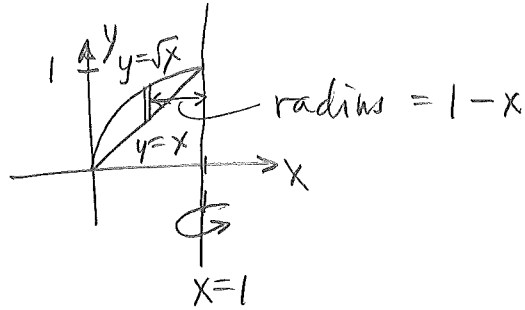 y
1
y=√x
radius = 1-x
y=x
x
x=1